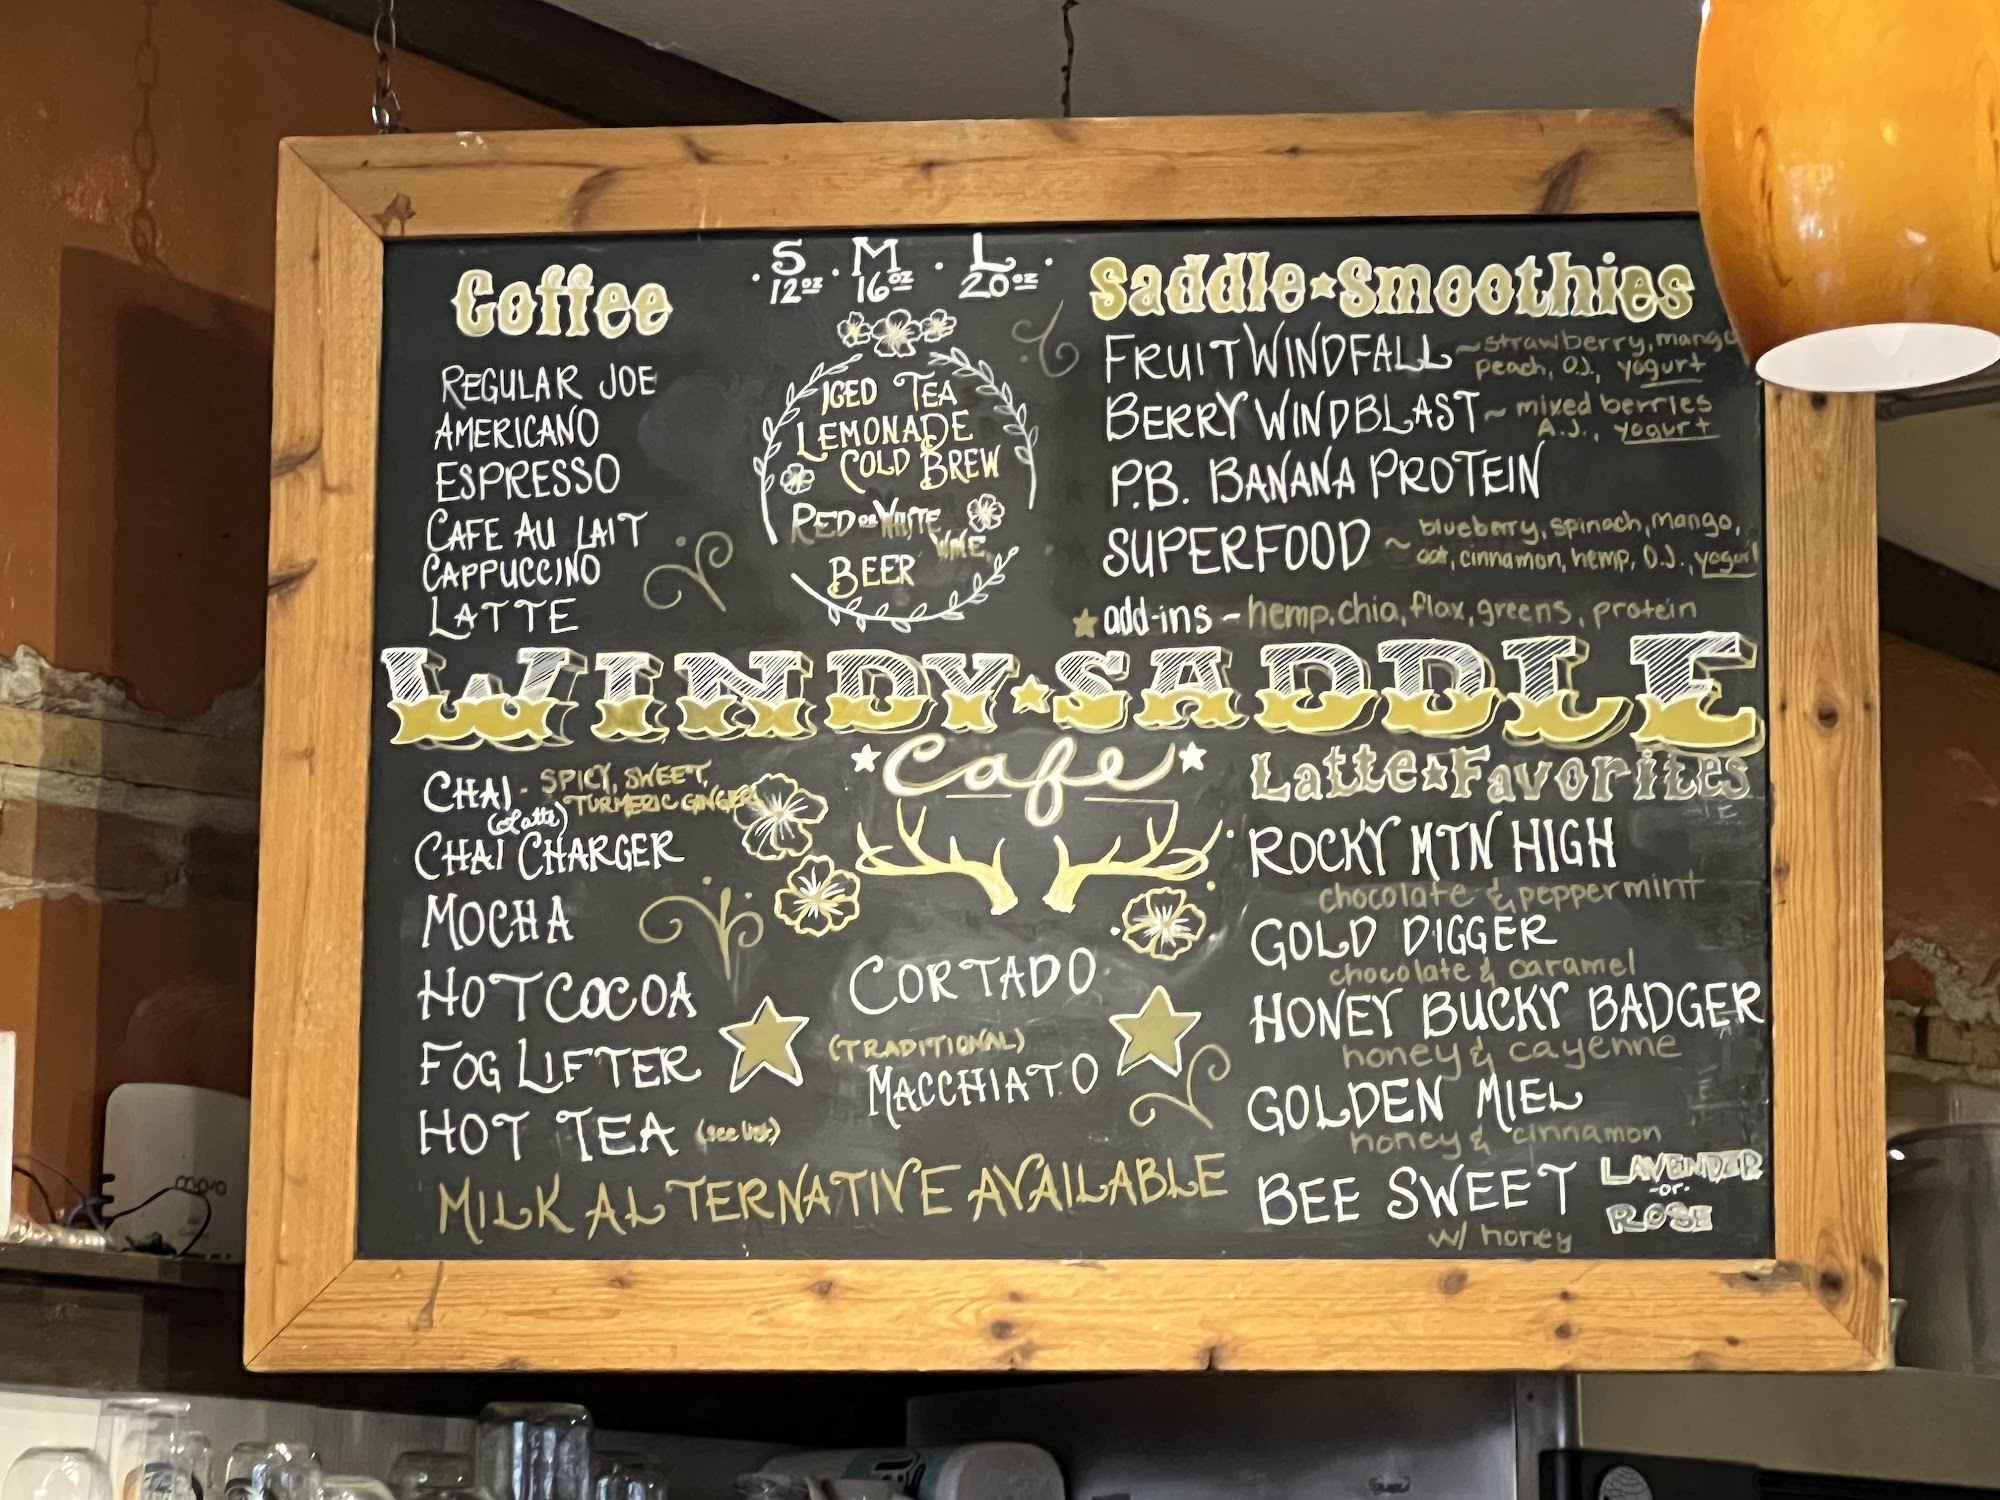 Coffee
REGULAR JOE
AMERICANO
ESPRESSO
CAFE AU LAIT
CAPPUCCINO
LATTE
· S · M · L ·
12oz 16oz 20oz
ICED TEA
LEMONADE
COLD BREW
RED or WHITE
WINE
BEER
Saddle Smoothies
FRUIT WINDFALL ~ strawberry, mango
peach, O.J., yogurt
BERRY WINDBLAST ~ mixed berries
A.J., yogurt
P.B. BANANA PROTEIN
SUPERFOOD ~ blueberry, spinach, mango,
oat, cinnamon, hemp, O.J., yogurt
add-ins - hemp, chia, flax, greens, protein
WINDY SADDLE
Cafe
CHAI - SPICY, SWEET,
TURMERIC GINGER
(Latte)
CHAI CHARGER
MOCHA
HOT COCOA
FOG LIFTER
HOT TEA (see list)
CORTADO
(TRADITIONAL)
MACCHIATO
MILK ALTERNATIVE AVAILABLE
Latte Favorites
ROCKY MTN HIGH
chocolate & peppermint
GOLD DIGGER
chocolate & caramel
HONEY BUCKY BADGER
honey & cayenne
GOLDEN MIEL
honey & cinnamon
BEE SWEET LAVENDER
-or-
ROSE
w/ honey
mojo